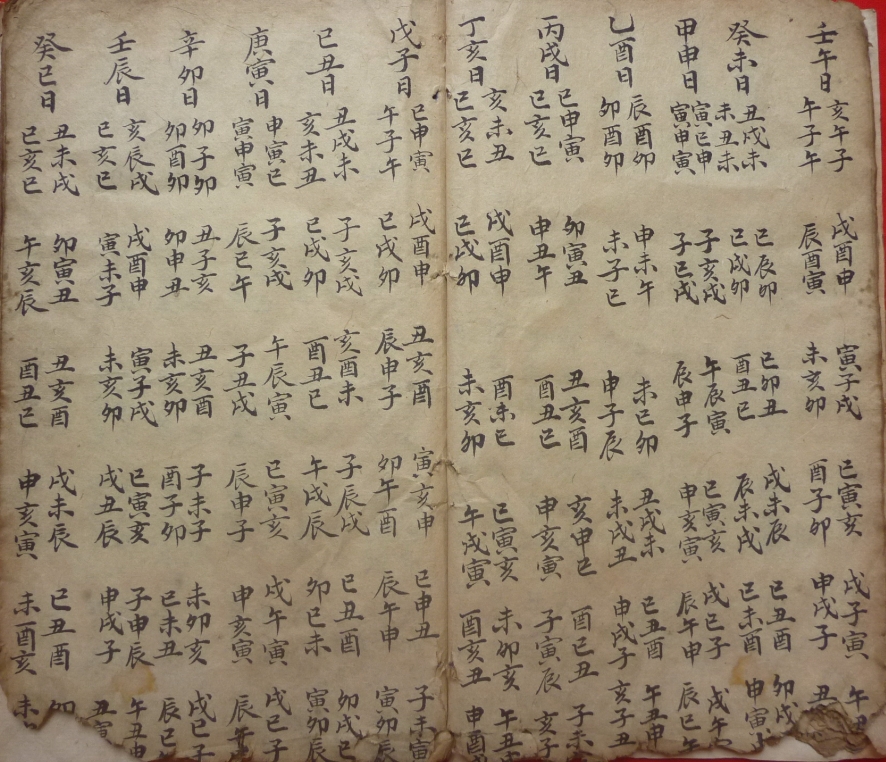 壬午日
亥午子 戌酉申 寅子戌 巳寅亥 戌子寅 午丑
午子午 辰酉寅 未亥卯 酉子卯 申戌子 丑
癸未日
丑戌未 巳辰卯 巳卯丑 戌未辰 巳丑酉 卯戌
未丑未 巳戌卯 酉丑巳 辰未戌 巳未酉 申寅
甲申日
寅巳申 子亥戌 午辰寅 巳寅亥 戌巳子 戌午
寅申寅 子巳戌 辰申子 申亥寅 辰午申 辰巳午
乙酉日
辰酉卯 申未午 未巳卯 丑戌未 巳丑酉 午丑申
卯酉卯 未子巳 申子辰 未戌丑 申戌子 亥子丑
丙戌日
巳申寅 卯寅丑 丑亥酉 亥申巳 酉巳丑 子未
巳亥巳 申丑午 酉丑巳 申亥寅 子寅辰 亥子
丁亥日
亥未丑 戌酉申 酉未巳 巳寅亥 未卯亥 午丑申
巳亥巳 巳戌卯 未亥卯 午戌寅 酉亥丑 申酉
戊子日
巳申寅 戌酉申 丑亥酉 寅亥申 巳申丑 子未寅
午子午 巳戌卯 辰申子 卯午酉 辰午申 寅卯辰
己丑日
丑戌未 子亥戌 亥酉未 子辰戌 巳丑酉 卯戌巳
亥未丑 巳戌卯 酉丑巳 午戌辰 卯巳未 寅卯辰
庚寅日
申寅巳 子亥戌 午辰寅 巳寅亥 戌午寅 戌巳子
寅申寅 辰巳午 子丑戌 辰申子 申亥寅 辰
辛卯日
卯子卯 丑子亥 丑亥酉 子未子 未卯亥 戌巳子
卯酉卯 卯申丑 未亥卯 酉子卯 巳未丑 辰巳
壬辰日
亥辰戌 戌酉申 寅子戌 巳寅亥 子申辰 午丑申
巳亥巳 寅未子 未亥卯 戌丑辰 申戌子 丑寅
癸巳日
丑未戌 卯寅丑 丑亥酉 戌未辰 巳丑酉
巳亥巳 午亥辰 酉丑巳 申亥寅 未酉亥 未